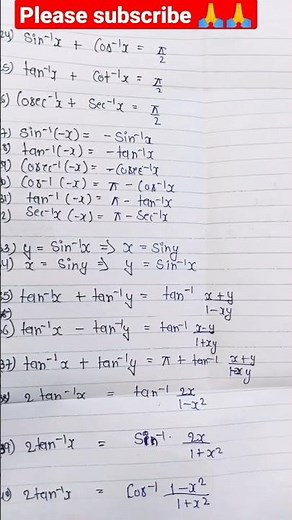 Please subscribe 🙏🙏
24) Sin⁻¹x + Cos⁻¹x = π/2
25) tan⁻¹x + Cot⁻¹x = π/2
6) Cosec⁻¹x + Sec⁻¹x = π/2
7) Sin⁻¹(-x) = -Sin⁻¹x
8) tan⁻¹(-x) = -tan⁻¹x
9) Cosec⁻¹(-x) = -Cosec⁻¹x
0) Cos⁻¹(-x) = π - Cos⁻¹x
31) tan⁻¹(-x) = π - tan⁻¹x
2) Sec⁻¹x(-x) = π - Sec⁻¹x
33) y = Sin⁻¹x ⇒ x = Siny
4) x = Siny ⇒ y = Sin⁻¹x
35) tan⁻¹x + tan⁻¹y = tan⁻¹ x+y/1-xy
36) tan⁻¹x - tan⁻¹y = tan⁻¹ x-y/1+xy
37) tan⁻¹x + tan⁻¹y = π + tan⁻¹ x+y/1-xy
38) 2 tan⁻¹x = tan⁻¹ 2x/1-x²
39) 2tan⁻¹x = Sin⁻¹ 2x/1+x²
40) 2tan⁻¹x = Cos⁻¹ 1-x²/1+x²